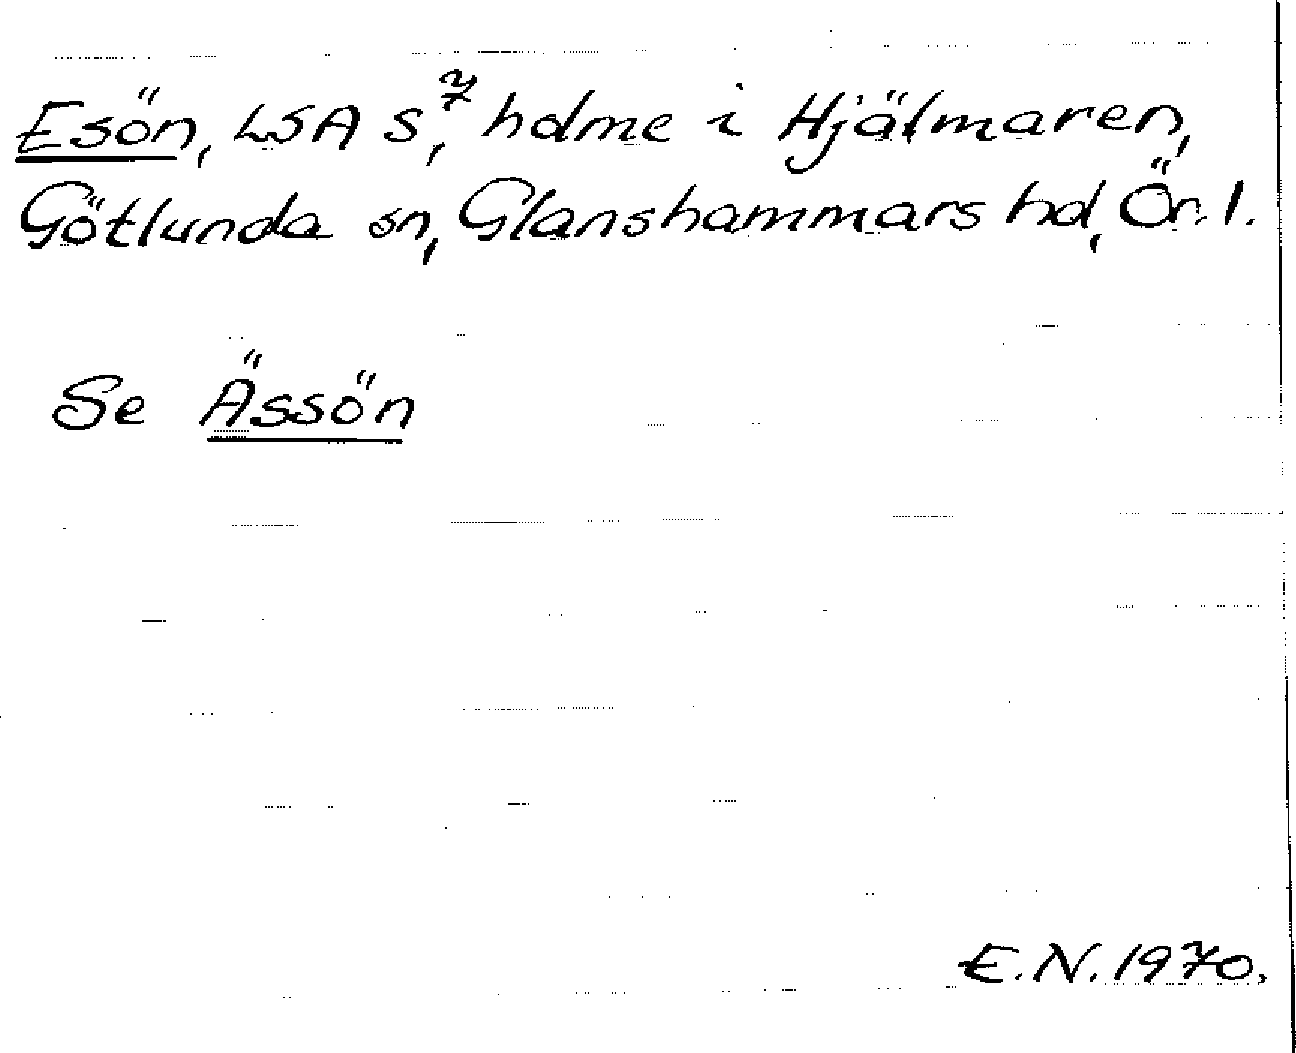 Esön, LSA S⁷, holme i Hjälmaren,
Götlunda sn, Glanshammars hd, Ör. l.
Se Ässön
E.N. 1970.